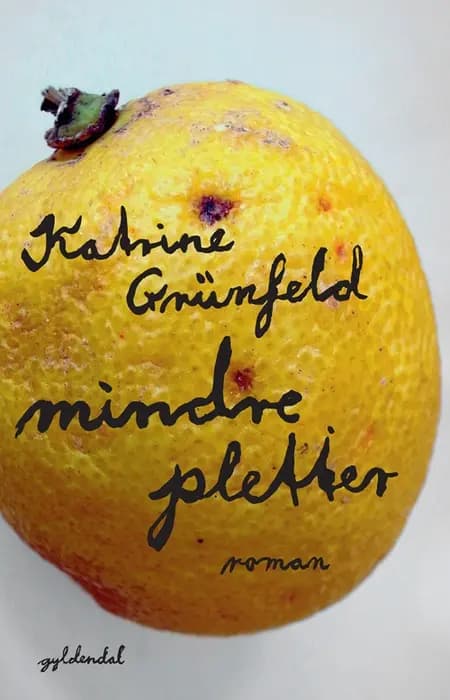 Katrine
Grünfeld
mindre
pletter
roman
gyldendal